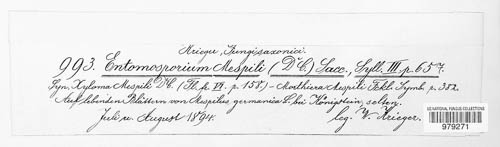 Krieger, Fungi saxonici.
993. Entomosporium Mespili (DC.) Sacc., Syll. III. p. 657.
Syn. Xyloma Mespili DC. (Fl. fr. VI. p. 158.) – Morthiera Mespili Fckl. Symb. p. 382.
Auf lebenden Blättern von Mespilus germanica L. bei Königstein, selten.
Juli u. August 1894. leg. W. Krieger.
US NATIONAL FUNGUS COLLECTIONS
979271